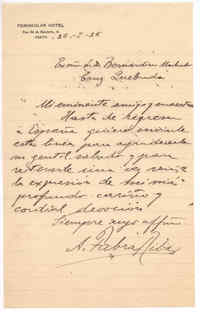 PENINSULAR HOTEL
PORTO, 28-2-26
Exmo Sr. D. Bernardino Machado
Mi eminente amigo y maestro
Hasta de regreso
a España quiero enviarle
estas líneas para agradecerle
su gentil saludo y para
una vez
la expresión de mi más
profundo cariño y
cordial devoción
Siempre suyo affmo
A. Fabra Ribas